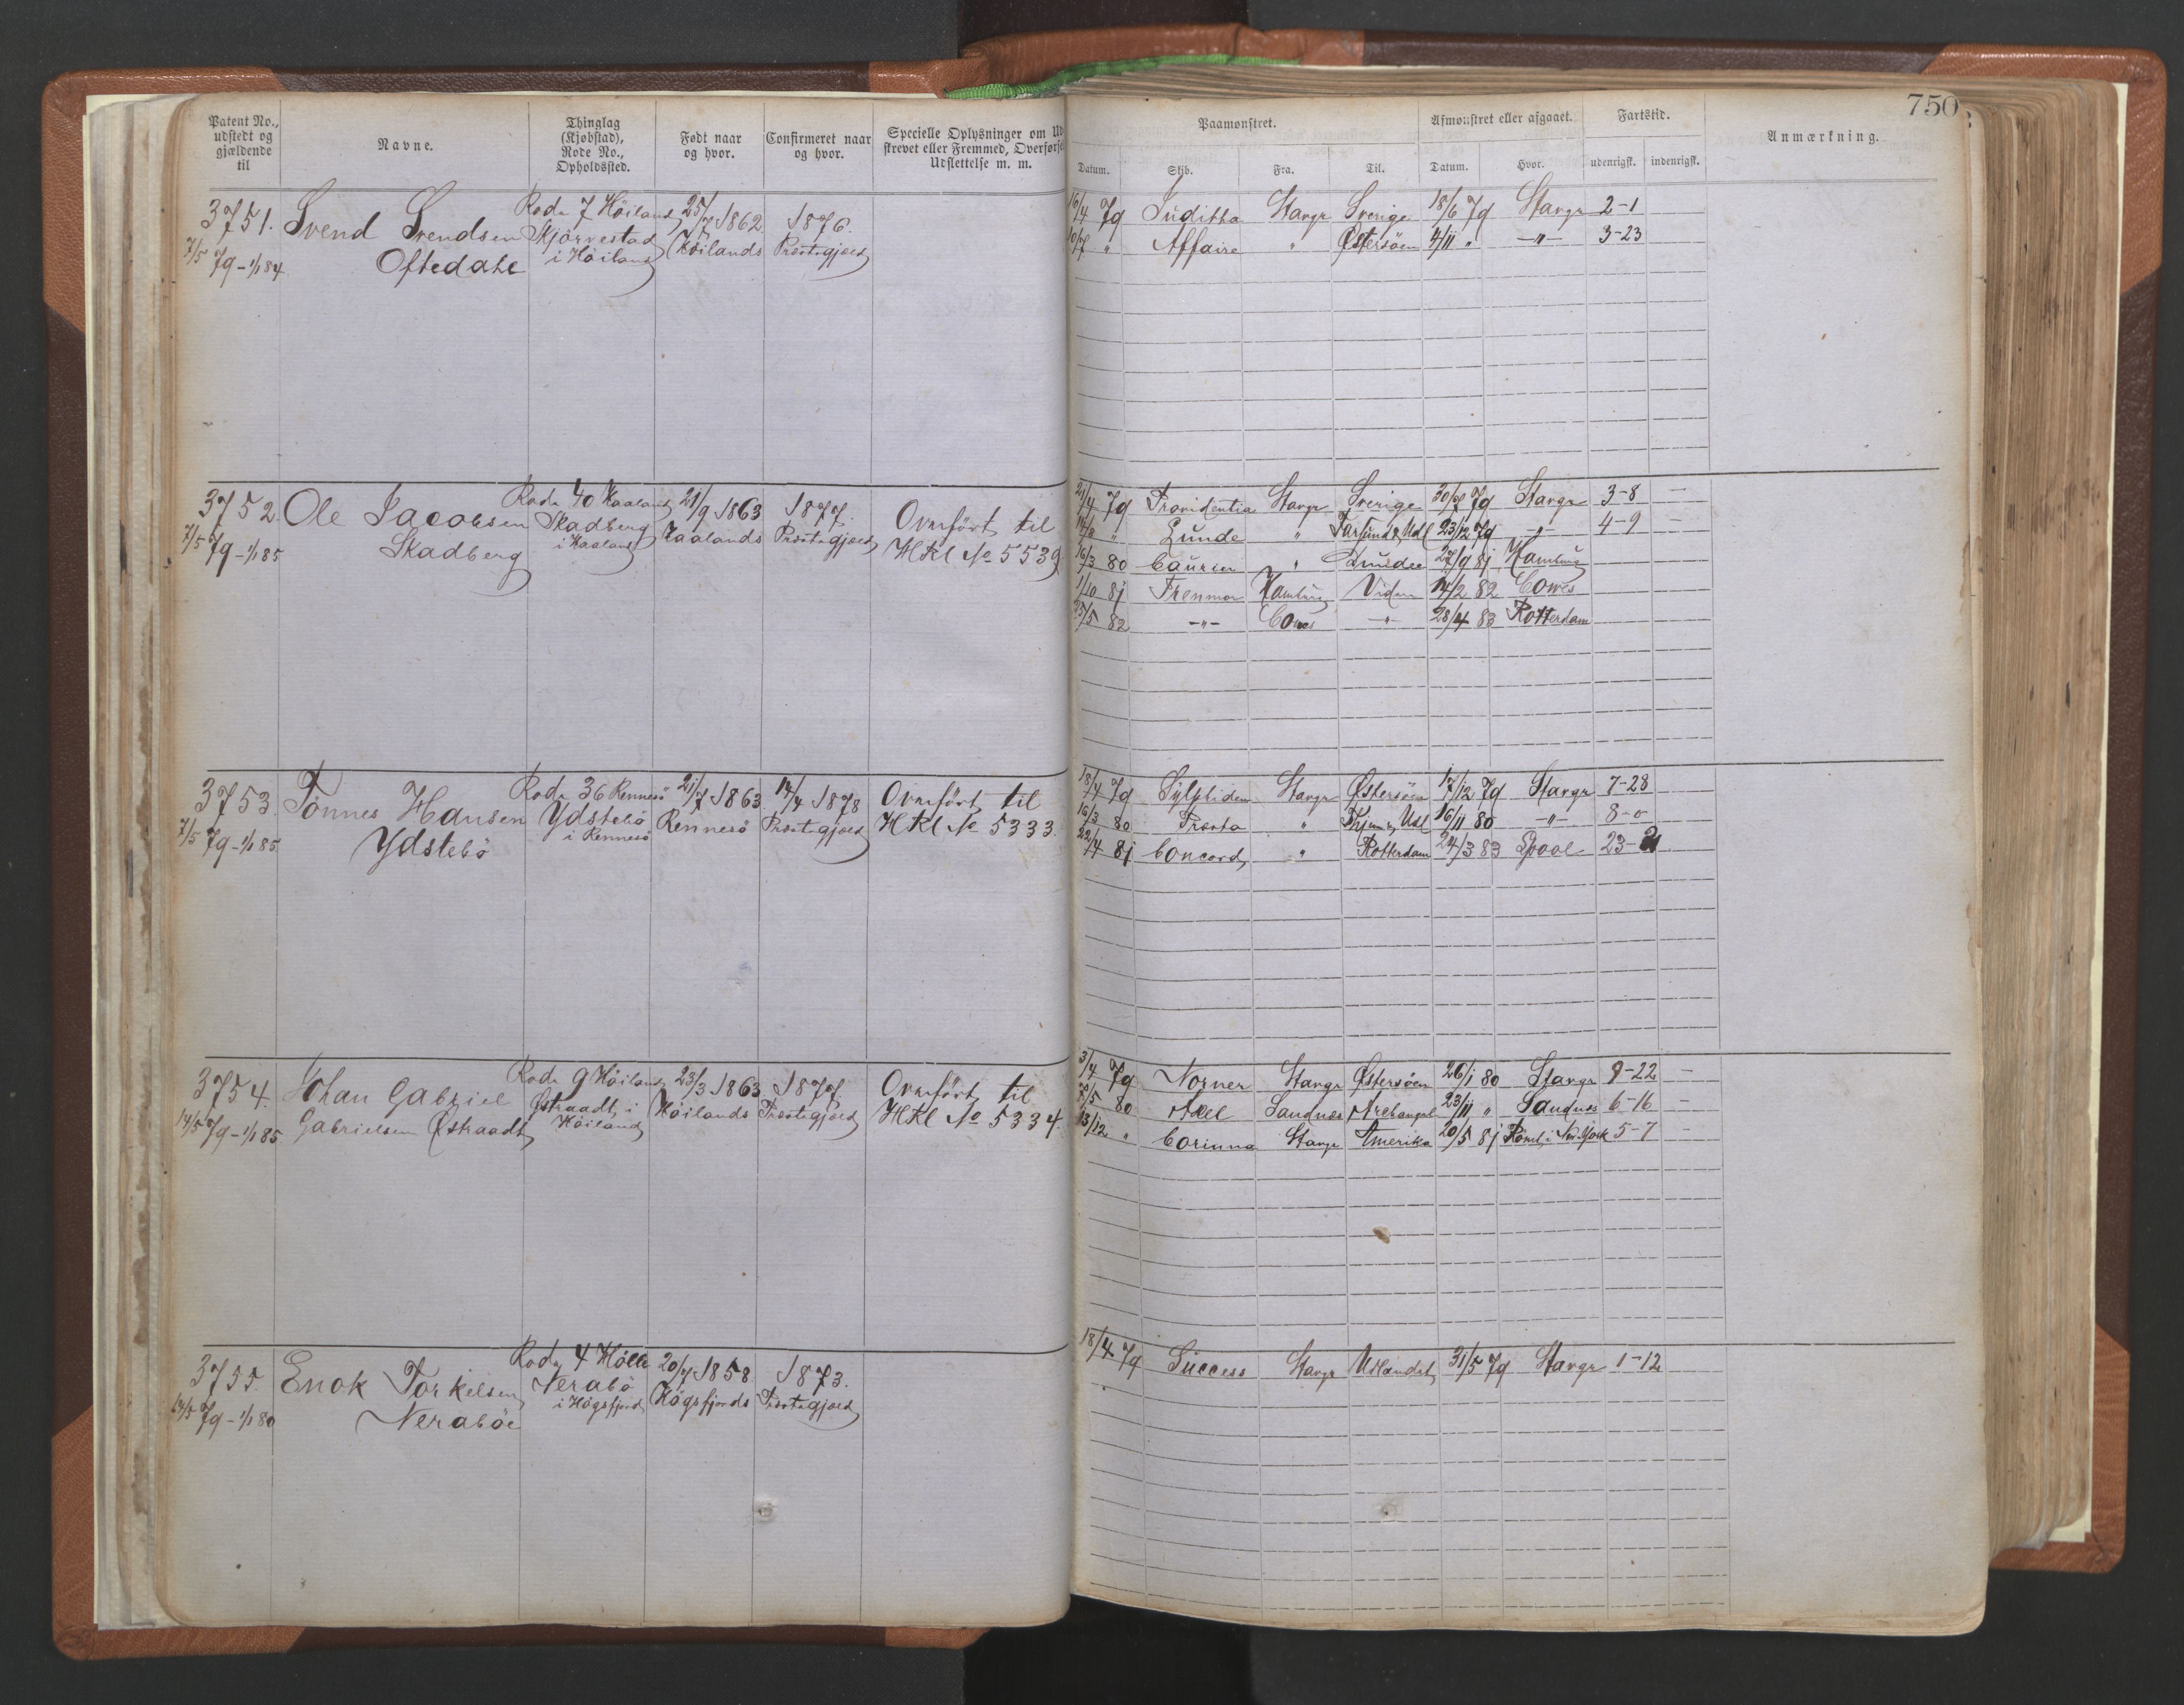 Patent No., udstedt og gjældende til
Navne.
Thinglag (Kjøbstad), Rode No., Opholdssted.
Født naar og hvor.
Confirmeret naar og hvor.
Specielle Oplysninger om Ud
skrevet eller Fremmed, Overførse
Udslettelse m. m.
750
Paamønstret.
Afmønstret eller afgaaet.
Fartstid.
Anmærkning.
Datum. Skib. Fra. Til. Datum. Hvor. udenrigsk. indenrigsk.
3751. Svend Svendsen Rode 7 Höiland 25/7 1862 1876.
7/5 79 - 1/1 84 Oftedahl Skjörvestad i Höiland Höilands Præstegjæld
16/4 79 Juditha Stavgr Sverige 18/6 79 Stavgr 2-1
10/7 " Affaire " Østersöen 4/11 " -"- 3-23
3752. Ole Jacobsen Rode 40 Haaland 21/9 1863 1877. Overført til
7/5 79 - 1/1 85 Skadberg Skadberg i Haaland Haalands Præstegjæld HKl No 5539
21/4 79 Providentia Stavgr Sverige 30/7 79 Stavgr 3-8 -
14/8 " Lunde " Farsund & Udl 23/12 79 -"- 4-9 -
16/3 80 Courier " Dundee 27/9 81 Hamburg
1/10 81 Fremmor Hamburg Viden 14/2 82 Cowes
23/5 82 -"- Cowes -"- 28/4 83 Rotterdam
3753. Tönnes Hansen Rode 36 Rennesö 21/7 1863 14/4 1878 Overfört til
7/5 79 - 1/1 85 Ydstebö Ydstebö i Rennesö Rennesö Præstegjæld HKl No 5333.
18/4 79 Sylphiden Stavgr Østersöen 17/12 79 Stavgr 7-28
16/3 80 " 16/11 80 -"- 8-0
22/4 81 Concord " Rotterdam 24/3 83 Lpool 23-2
3754. Johan Gabriel Rode 9 Höiland 23/3 1863 1877. Overfört til
14/5 79 - 1/1 85 Gabrielsen Østraadt Østraadt i Höiland Höilands Præstegjæld HKl No 5334.
3/4 79 Norner Stavgr Østersöen 26/1 80 Stavgr 9-22 -
7/5 80 Axel Sandnes Archangel 23/11 " Sandnes 6-16 -
13/12 " Corinna Stavgr Amerika 20/5 81 Römt i New York 5-7 -
3755. Enok Torkelsen Rode 4 Hölle 20/7 1858 1873.
14/5 79 - 1/1 80 Neraböe Nerabö i Högsfjord Högsfjords Præstegjæld
18/4 79 Success Stavgr Udlandet 31/5 79 Stavgr 1-12